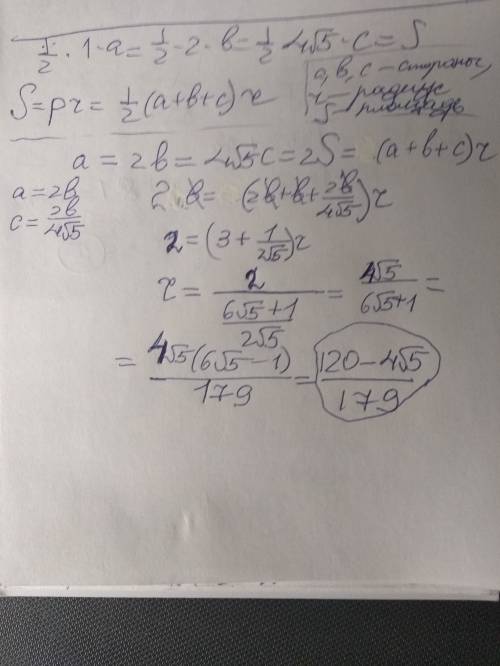 1/2 · 1 · a = 1/2 · 2 · b = 1/2 4√5 · c = S
S = pr = 1/2 (a+b+c) r
a, b, c – стороны,
r – радиус
S – площадь
a = 2b = 4√5c = 2S = (a+b+c) r
a = 2b
c = 2b/4√5
2b = (2b+b+2b/4√5) r
2 = (3 + 1/2√5) r
r = 2/((6√5+1)/2√5) = 4√5/(6√5+1) =
= 4√5(6√5−1)/179 = (120−4√5)/179